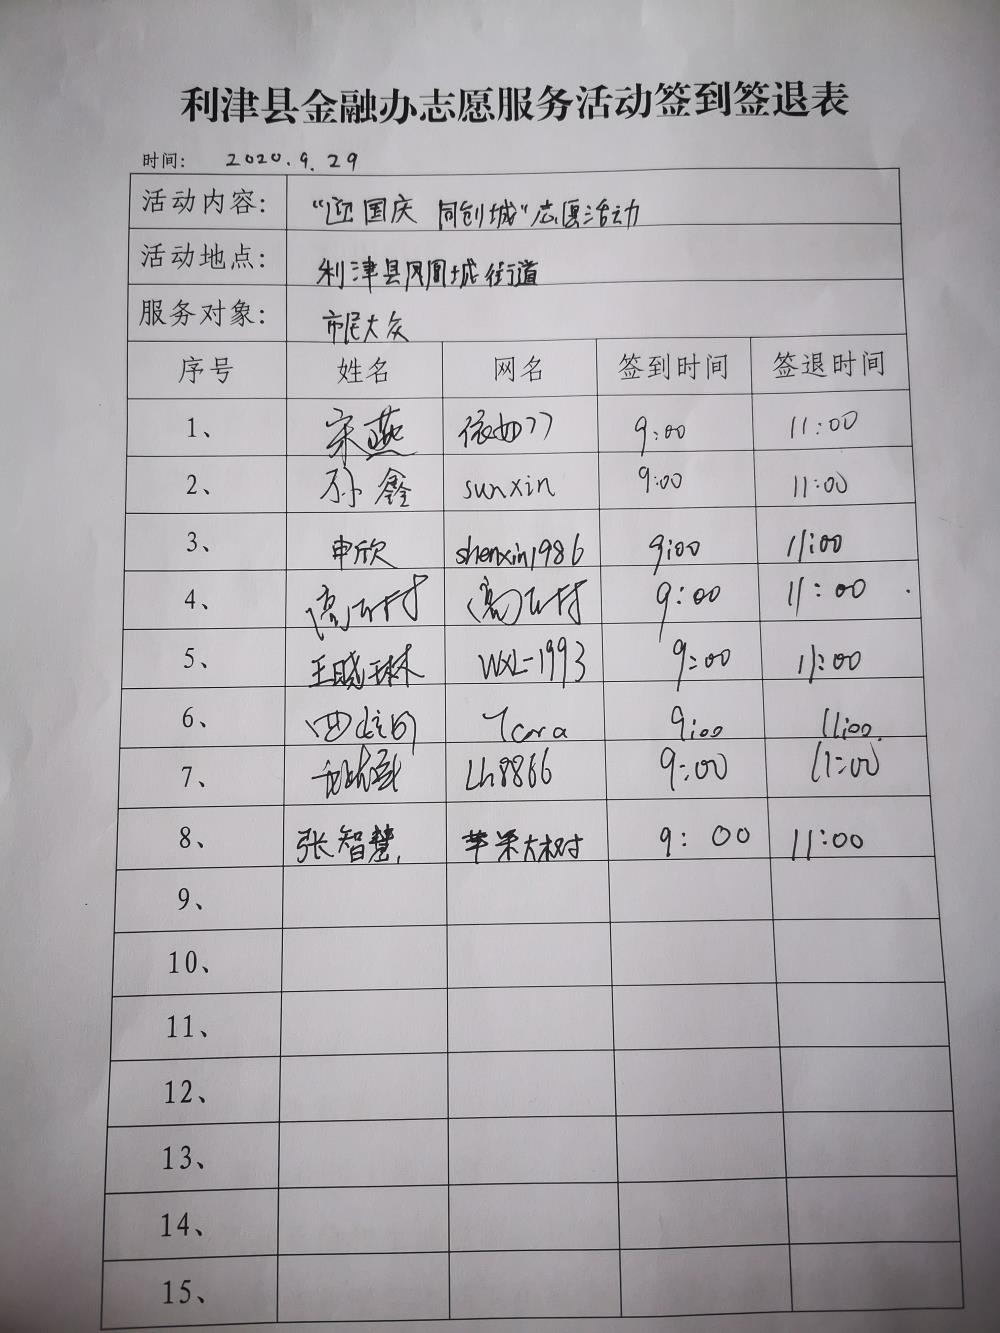 利津县金融办志愿服务活动签到签退表
时间: 2020.9.29
活动内容: "迎国庆 同创城"志愿活动
活动地点: 利津县凤凰城街道
服务对象: 市民大众
序号 姓名 网名 签到时间 签退时间
1、 宋燕 9:00 11:00
2、 孙鑫 sunxin 9:00 11:00
3、 申欣 shenxin1986 9:00 11:00
4、 9:00 11:00
5、 王晓琳 WXL-1993 9:00 11:00
6、 9:00 11:00.
7、 Lh8866 9:00 11:00
8、 张智慧 苹果大树 9:00 11:00
9、
10、
11、
12、
13、
14、
15、